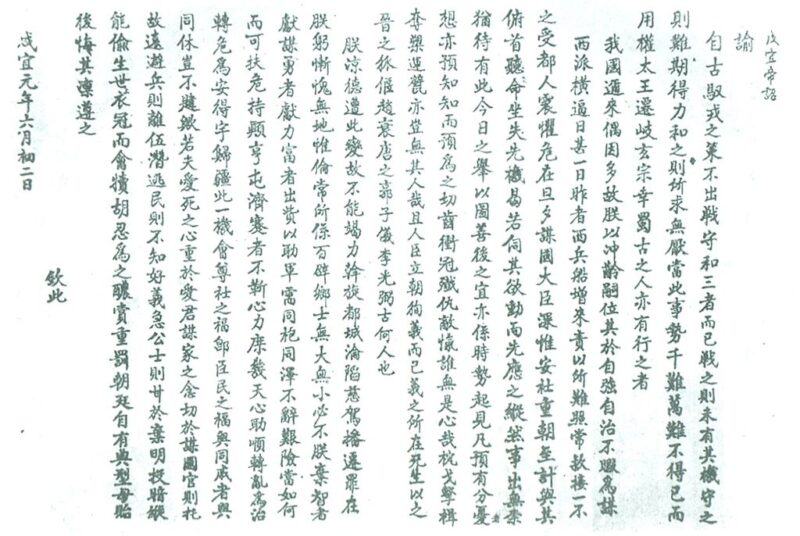 咸宜帝詔
諭
自古馭戎之策不出戰守和三者而已戰之則未有其機守之
則難期得力和之則所求無厭當此事勢千難萬難不得已而
用權太王遷岐玄宗幸蜀古之人亦有行之者
我國邇來偶因多故朕以沖齡嗣位其於自強自治不暇爲謀
西派橫逼日甚一日昨者西兵船增來責以所難照常款接一不
之受都人震懼危在旦夕謀國大臣深惟安社重朝至計與其
俯首聽命坐失先機曷若伺其欲動而先應之縱然事出無柰
猶待有此今日之舉以圖善後之宜亦係時勢起見凡預有分憂
想亦預知知而預爲之切齒衝冠殲仇敵愾誰無是心哉枕戈擊楫
奪槊運甓亦豈無其人哉且人臣立朝徇義而已義之所在死生以之
晉之狐偃趙衰唐之郭子儀李光弼古何人也
朕涼德遭此變故不能竭力斡旋都城淪陷慈駕播遷罪在
朕躬慚愧無地惟倫常所係百辟鄉士無大無小必不朕棄智者
獻謀勇者獻力富者出貲以助軍需同袍同澤不辭艱險當如何
而可扶危持顛亨屯濟蹇者不靳心力庶幾天心助順轉亂爲治
轉危爲安得宇歸疆此一機會尊社之福卽臣民之福與同戚者與
同休豈不韙歟若夫愛死之心重於愛君謀家之念切於謀國官則托
故遠避兵則離伍潛逃民則不知好義急公士則甘於棄明投暗縱
能偷生世衣冠而禽犢胡忍爲之醲賞重罰朝廷自有典型毋貽
後悔其凛遵之
欽此
咸宜元年六月初二日